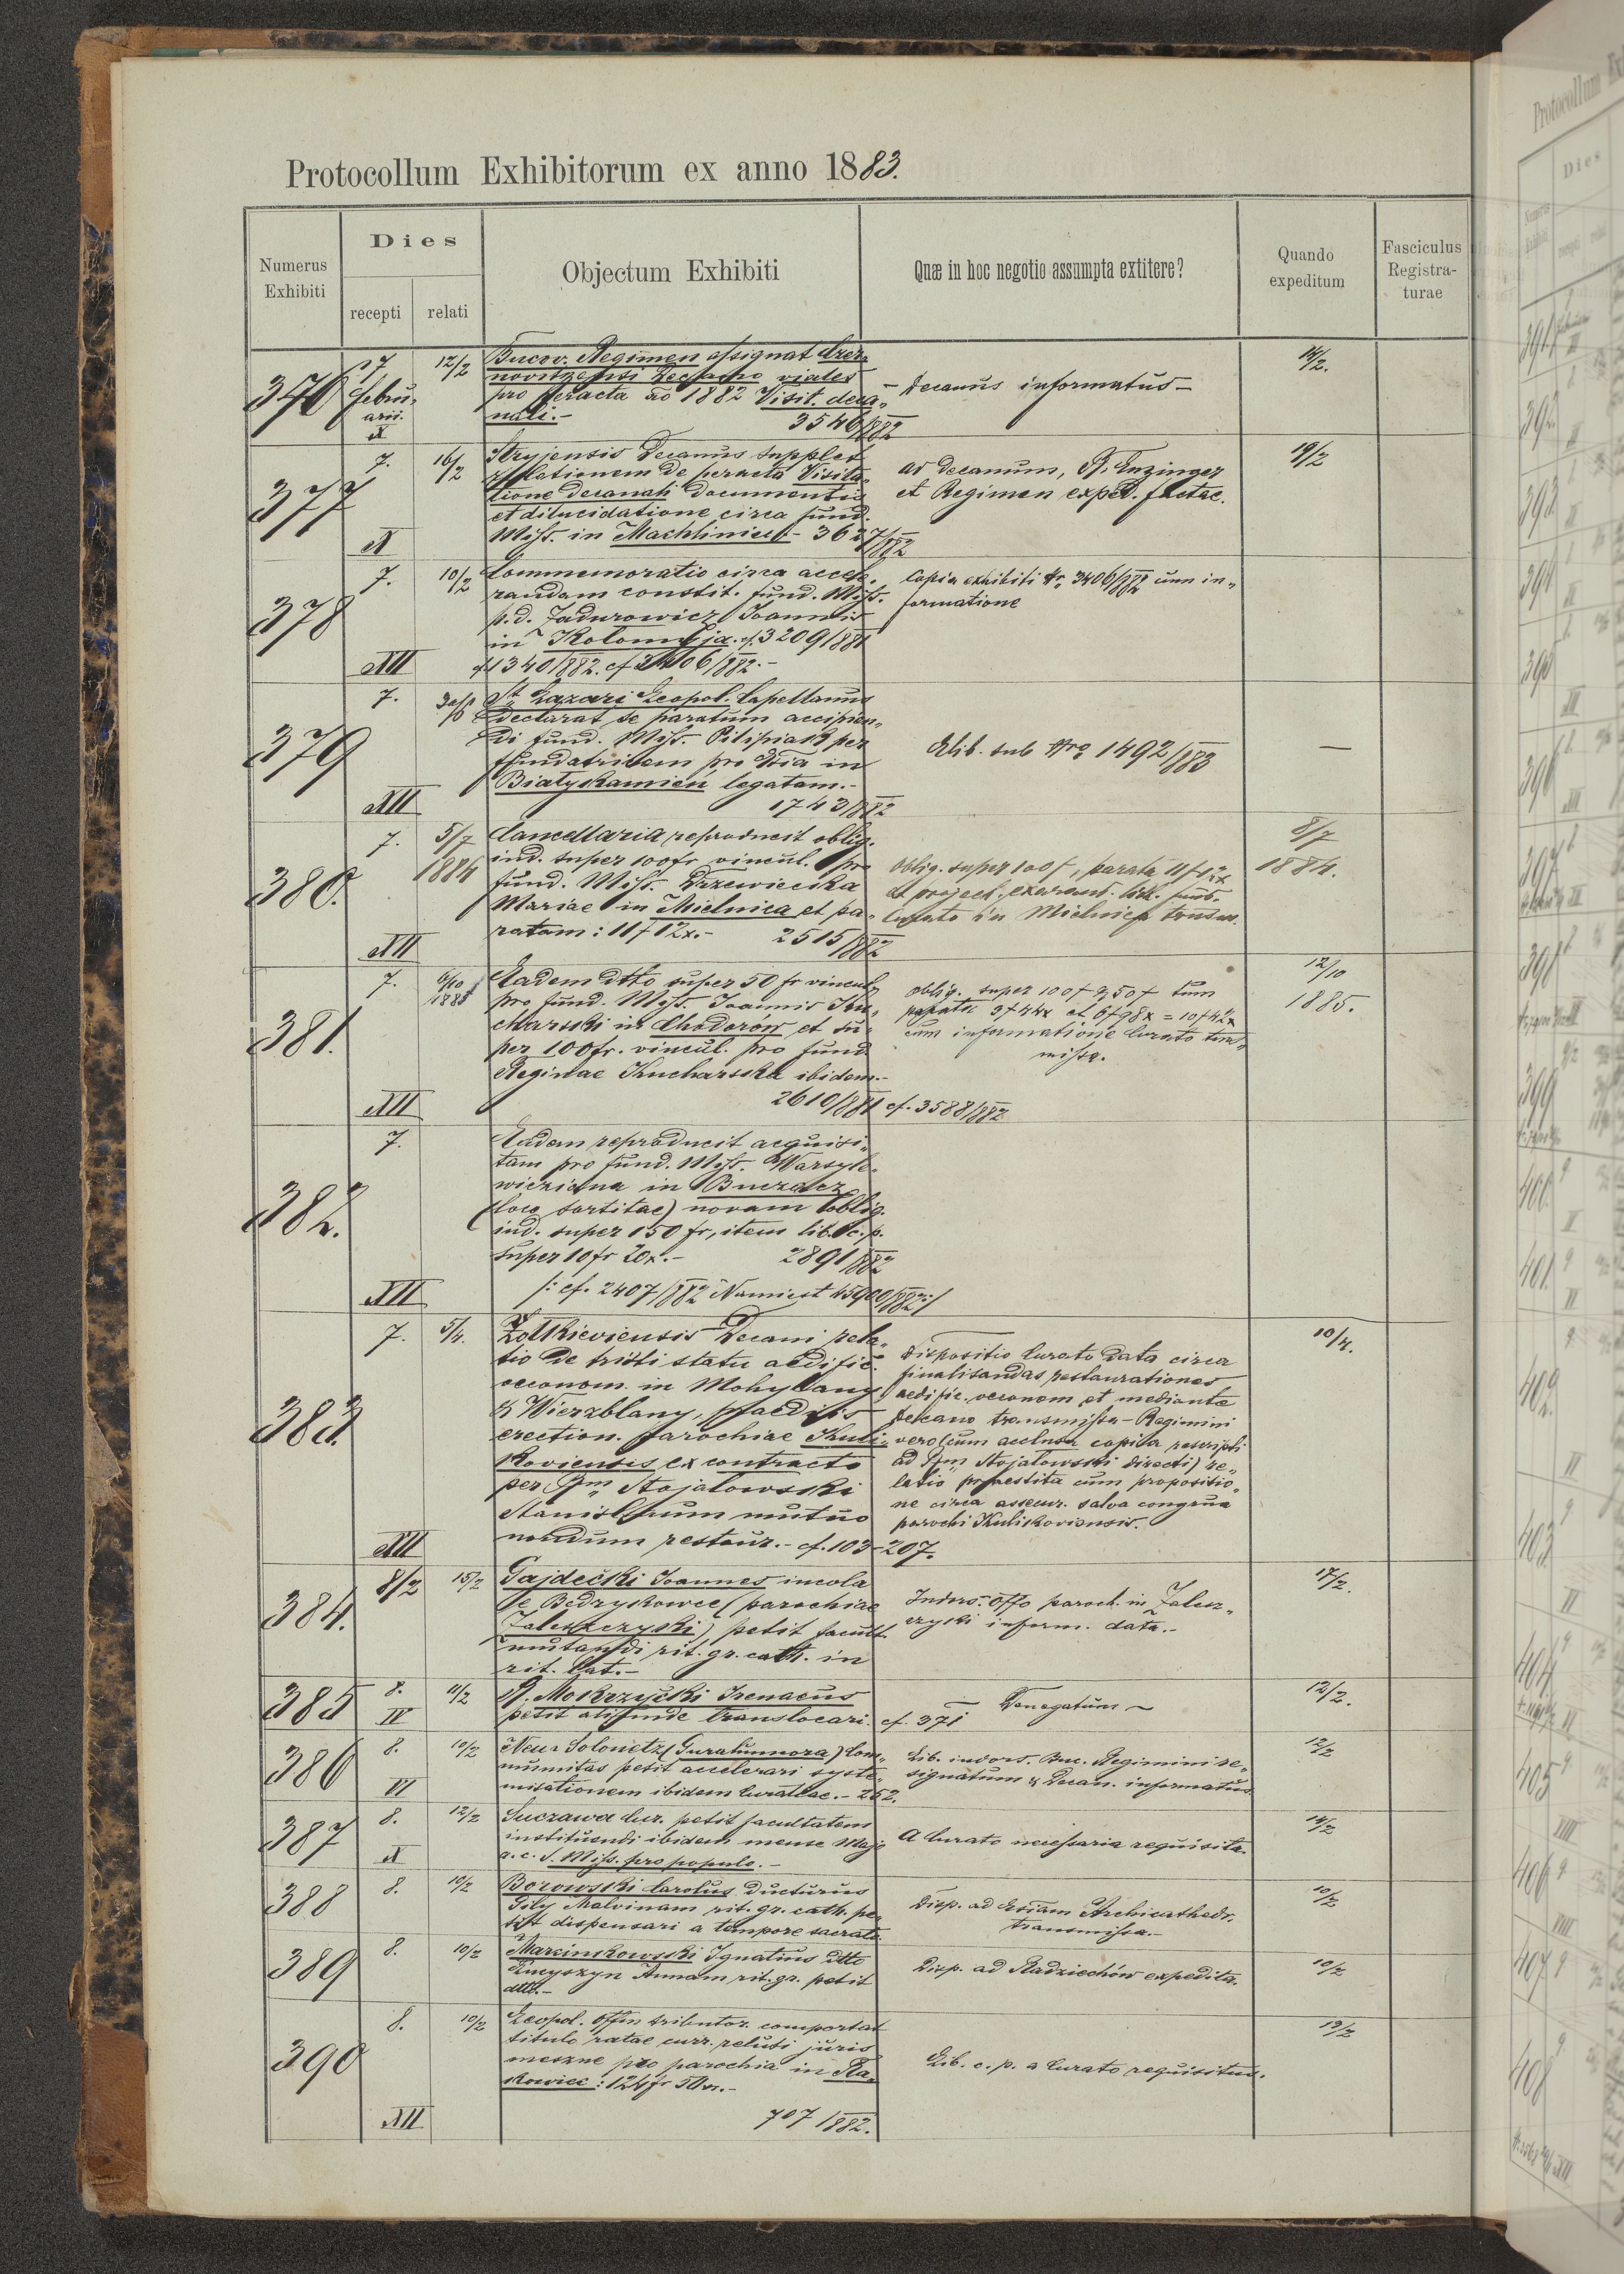 Protocollum Exhibitorum ex anno 1883.
Numerus Exhibiti
Dies
recepti
relati
Objectum Exhibiti
Quæ in hoc negotio assumpta extitere?
Quando expeditum
Fasciculus Registra-
turae
376
7
febru-
arii.
X
12/2
Bucov. Regimen assignat Czer-
novitzensi Decano viales
pro peracta ao 1882 Visit. deca-
nali.-
3546/882
- Decanus informatus -
14/2.
377
7.
X
16/2
Stryjensis Decanus supplet
relationem de peracta Visita-
tione decanali documentis
et dilucidatione circa fund.
Miss. in Machliniec - 3627/882
ad Decanum, R. Enzinger
et Regimen exped. factae.
19/2
378
7.
XII
10/2
Commemoratio circa accele-
randam constit. fund. Miss.
p. d. Zadurowicz Joannis
in Kolomyja. cf. 3209/881
cf 1340/882. cf 3406/882.-
Copia exhibiti Nr. 3406/882 cum in-
formatione
379
7.
XII
St. Lazari Leopol. Capellanus
declarat se paratum accipien-
di fund. Miss. Pilipiak per
fundatricem pro Ecclia in
Białykamień legatam.-
1743/882
Elib. sub Nro 1492/883
—
380.
7.
XII
5/7
1884
Cancellaria reproducit oblig.
ind. super 100fr vincul. pro
fund. Miss. Drzewiecka
Mariae in Mielnica et pa-
ratam: 11f 12x.- 2515/882
Oblig. super 100f, parata 11f 12x
et project. exarand. litt. fund.
Curato in Mielnica transm.
8/7
1884.
381.
7.
XII
6/10
1885
Eadem dtto super 50 fr vincul.
pro fund. Miss. Joannis Ku-
charski in Chodorów et su-
per 100fr. vincul. pro fund
Reginae Kucharska ibidem.-
2610/881 cf. 3588/882
Oblig. super 100f & 50f tum
parata 3f 44x et 6f 98x = 10f 42x
cum informatione Curato trans-
missa.
12/10
1885.
382.
7.
XII
Eadem reproducit acquisi-
tam pro fund. Miss. Warsyle-
wicziana in Buczacz
(loco sortitae) novam oblig.
ind. super 150 fr, item lib. c. p.
super 10 fr 20x.- 2891/882
/: cf. 2407/882 Namiest 45900/882 :/
383.
7.
XII
5/4.
Żołkieviensis Decani rela-
tio de tristi statu aedific.
oeconom. in Mohylany
& Wierzblany, praediis
erection. parochiae Kuli-
koviensis ex contracto
per Rm Stojałowski
Stanislaum mutuo
nondum restaur.- cf. 103-207.
Dispositio Curato data circa
finalisandas restaurationes
aedific. oeconom et mediante
Decano transmissa - Regimini
vero (cum acclusa copia rescripti
ad Rm Stojałowski directi) re-
latio praestita cum propositio-
ne circa assecur. salva congrua
parochi Kulikoviensis.
10/4.
384.
8/2
15/2
Gajdečki Joannes incola
de Bedrykowce (parochiae
Zaleszczyki) petit facult.
mutandi rit. gr. cath. in
rit. lat.-
Indors. offo paroch. in Zalesz-
czyki inform. data.-
17/2.
385
8.
IV
11/2
R. Mokrzycki Irenaeus
petit aliunde translocari. cf. 371
Denegatum ~
12/2.
386
8.
VI
10/2
Neu-Solonetz (Gurahumora) Com-
munitas petit accelerari syste-
misationem ibidem Curatiae.- 252.
Lib. indors. Buc. Regimini re-
signatum & Decan. informatus
12/2
387
8.
X
12/2
Suczawa Cur. petit facultatem
instituendi ibidem mense Majo
a. c. S. Miss. pro populo.-
A Curato necessaria requisita.
14/2
388
8.
10/2
Borowski Carolus ducturus
Gily Malvinam rit. gr. cath. pe-
tit dispensari a tempore sacrato.
Disp. ad Ecclsiam Archicathedr.
transmissa.-
10/2
389
8.
10/2
Marcinkowski Ignatius dtto
Kmyszyn Annam rit. gr. petit
dtto.-
Disp. ad Radziechów expedita.
10/2
390
8.
XII
10/2
Leopol. Offm tributor. comportat
titulo ratae curr. reluti juris
meszne pro parochia in Ra-
kowiec: 124fr 50x.-
707/882.
Lib. c. p. a Curato requisitus.
12/2